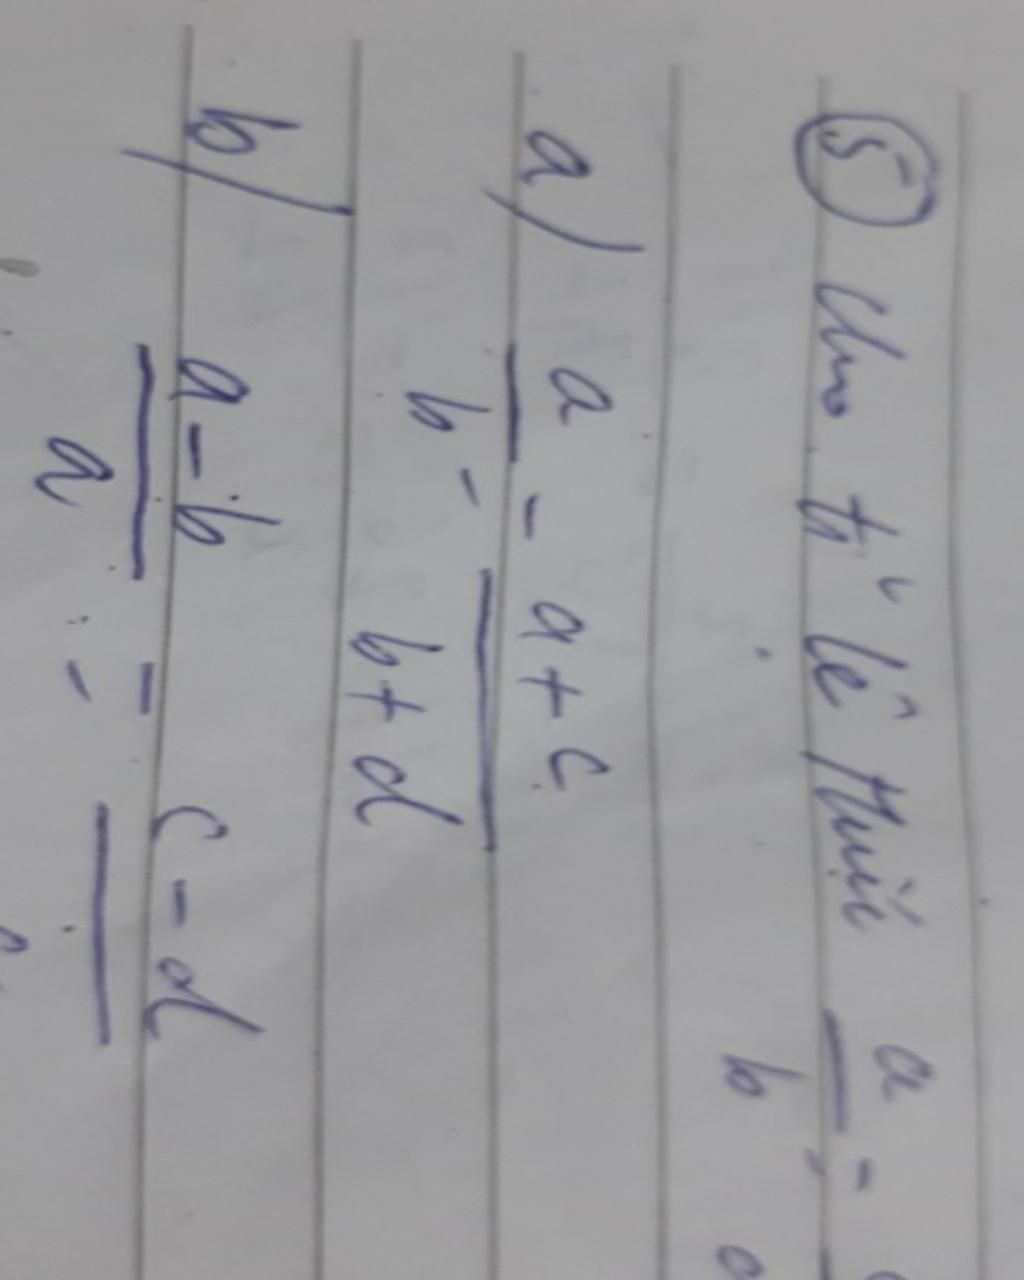 ⑤ Cho tỉ lệ thức a/b =
a) a/b = a+c/b+d
b) a-b/a = c-d/